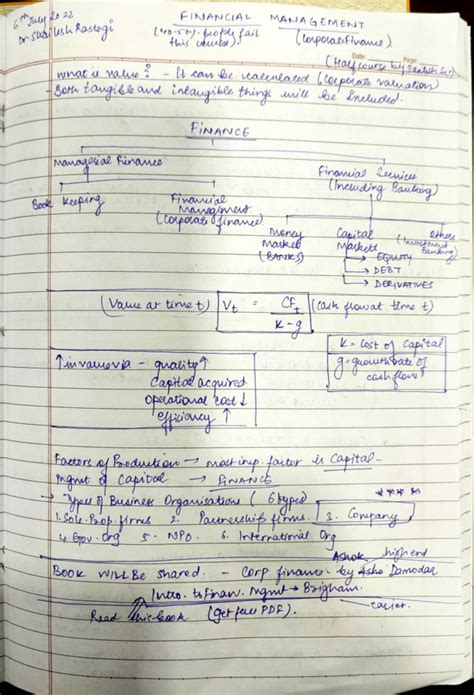 6th July 2022
Dr. Shailesh Rastogi
FINANCIAL MANAGEMENT
(40-50% people fail this course)
(Corporate Finance)
Date: Page:
(Half course by Sir)
What is value? - It can be calculated (Corporate valuation)
- Both tangible and intangible things will be Included.
FINANCE
Managerial Finance
Financial Services
(Including Banking)
Book Keeping
Financial
Management
(Corporate finance)
Money
Market
(BANKS)
Capital
Markets
Others
(Investment
Banking)
→ EQUITY
→ DEBT
→ DERIVATIVES
(Value at time t) Vt = CFt / K-g (cash flow at time t)
K = Cost of Capital
g = growth rate of
cash flow
↑ in value via - quality ↑
Capital acquired
Operational cost ↓
efficiency ↑
Factors of Production → most imp. factor is Capital -
Mgmt of Capital → FINANCE
→ Types of Business Organisations (6 types)
1. Sole-Prop. firms 2. Partnership firms 3. Company
4. Gov. Org 5. NPO. 6. International Org
Ashok high end
BOOK WILL BE shared. - Corp finance by Damodar
Intro. to Finan. Mgmt → Brigham.
easier.
Read this book (get full PDF).